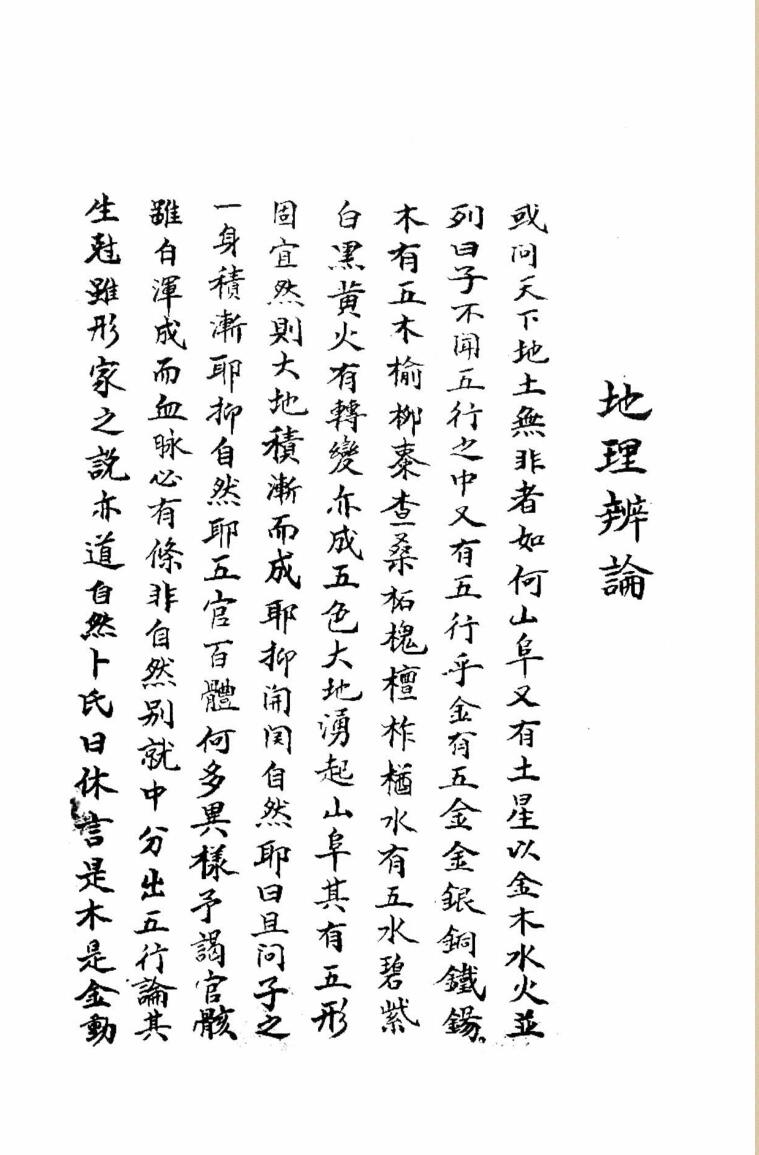 地理辨論
或问天下地土無非者如何山阜又有土星以金木水火並
列曰子不闻五行之中又有五行乎金有五金金銀銅鐵錫
木有五木榆柳棗查桑柘槐檀柞楢水有五水碧紫
白黑黄火有轉變亦成五色大地湧起山阜其有五形
固宜然則大地積漸而成耶抑闹闵自然耶曰且问子之
一身積漸耶抑自然耶五官百體何多異樣予謁官骸
雖白渾成而血脉必有條非自然别就中分出五行論其
生尅雖形家之説亦道自然卜氏曰休言是木是金動